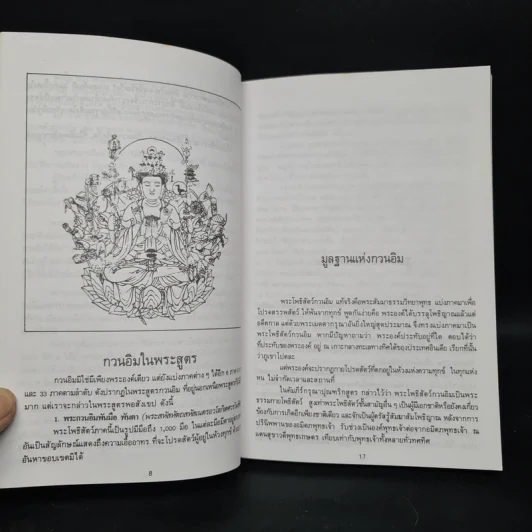 กวนอิมในพระสูตร
กวนอิมมิใช่มีเพียงพระองค์เดียว แต่ยังแบ่งภาคต่าง ๆ ได้อีก
และ 33 ภาคตามลำดับ ดังปรากฏในพระสูตรกวนอิม
มาก แต่เราจะกล่าวในพระสูตรพอสังเขป ดังนี้
1. พระกวนอิมพันมือ พันตา
พระโพธิสัตว์ภาคนี้เป็นรูปมีมือถึง 1,000 มือ ในแต่ละมือมี
อันเป็นสัญลักษณ์แสดงถึงความเอื้ออาทร ที่จะโปรดสัตว์ผู้อยู่ในห้วงทุกข์
อันหาขอบเขตมิได้
8
มูลฐานแห่งกวนอิม
พระโพธิสัตว์กวนอิม แท้จริงคือพระสัมมาธรรมวิทยาพุทธ แบ่งภาคมาเพื่อ
โปรดสรรพสัตว์ ให้พ้นจากทุกข์ พูดกันง่ายคือ พระองค์ได้บรรลุโพธิญาณแล้วแต่
อดีตกาล แต่ด้วยพระเมตตากรุณาอันยิ่งใหญ่สุดประมาณ จึงทรงแบ่งภาคมาเป็น
พระโพธิสัตว์กวนอิม หากมีปัญหาถามว่า พระองค์ประทับอยู่ที่ใด ตอบได้ว่า
ที่ประทับของพระองค์ อยู่ ณ เกาะกลางทะเลทางทิศใต้ของประเทศอินเดีย เรียกที่นั้น
ว่าภูเขาโปตละ
แต่พระองค์จะปรากฏกายโปรดสัตว์ที่ตกอยู่ในห้วงแห่งความทุกข์ ในทุกแห่ง
หน ไม่จำกัดเวลาและสถานที่
ในคัมภีร์กรุณาปุณฑริกสูตร กล่าวไว้ว่า พระโพธิสัตว์กวนอิมเป็นพระ
ธรรมกายโพธิสัตว์ สูงกว่าพระโพธิสัตว์ชั้นสามัญอื่น ๆ เป็นผู้มีเอกชาติหรือยังคงเกี่ยว
ข้องกับการเกิดอีกเพียงชาติเดียว และจักเป็นผู้ตรัสรู้สัมมาสัมโพธิญาณ หลังจากการ
ปรินิพพานของอมิตภพุทธเจ้า รับช่วงเป็นองค์พุทธเจ้าต่อจากอมิตภพุทธเจ้า ณ
แดนสุขาวดีพุทธเกษตร เทียบเท่ากับพระพุทธเจ้าทั้งหลายทั่วทศทิศ
17